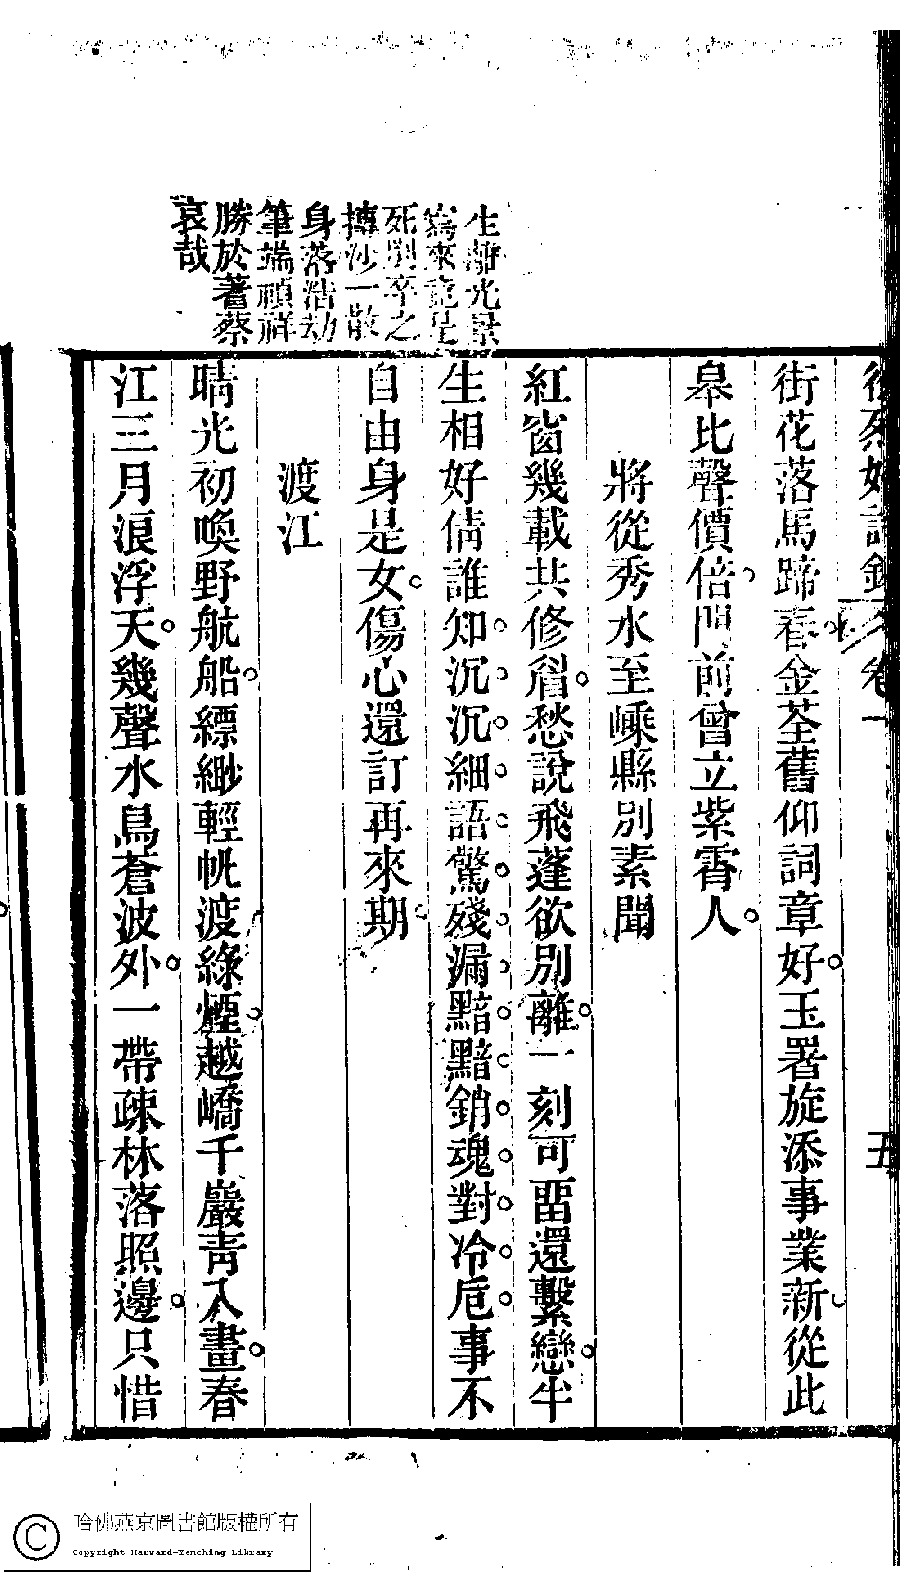 生離光景
寫來竟是
死別卒之
摶沙一散
身落浩劫
筆端禎祥
勝於蓍蔡
哀哉
卷一
五
街花落馬蹄春金荃舊仰詞章好玉署旋添事業新從此
皋比聲價倍門前曾立紫霄人
將從秀水至嵊縣別素聞
紅窗幾載共修眉愁說飛蓬欲別離一刻可畱還繫戀半
生相好倩誰知沉沉細語驚殘漏黯黯銷魂對冷卮事不
自由身是女傷心還訂再來期
渡江
晴光初喚野航船縹緲輕帆渡綠煙越嶠千巖靑入畫春
江三月浪浮天幾聲水鳥蒼波外一帶疎林落照邊只惜
哈佛燕京圖書館版權所有
Copyright Harvard-Yenching Library